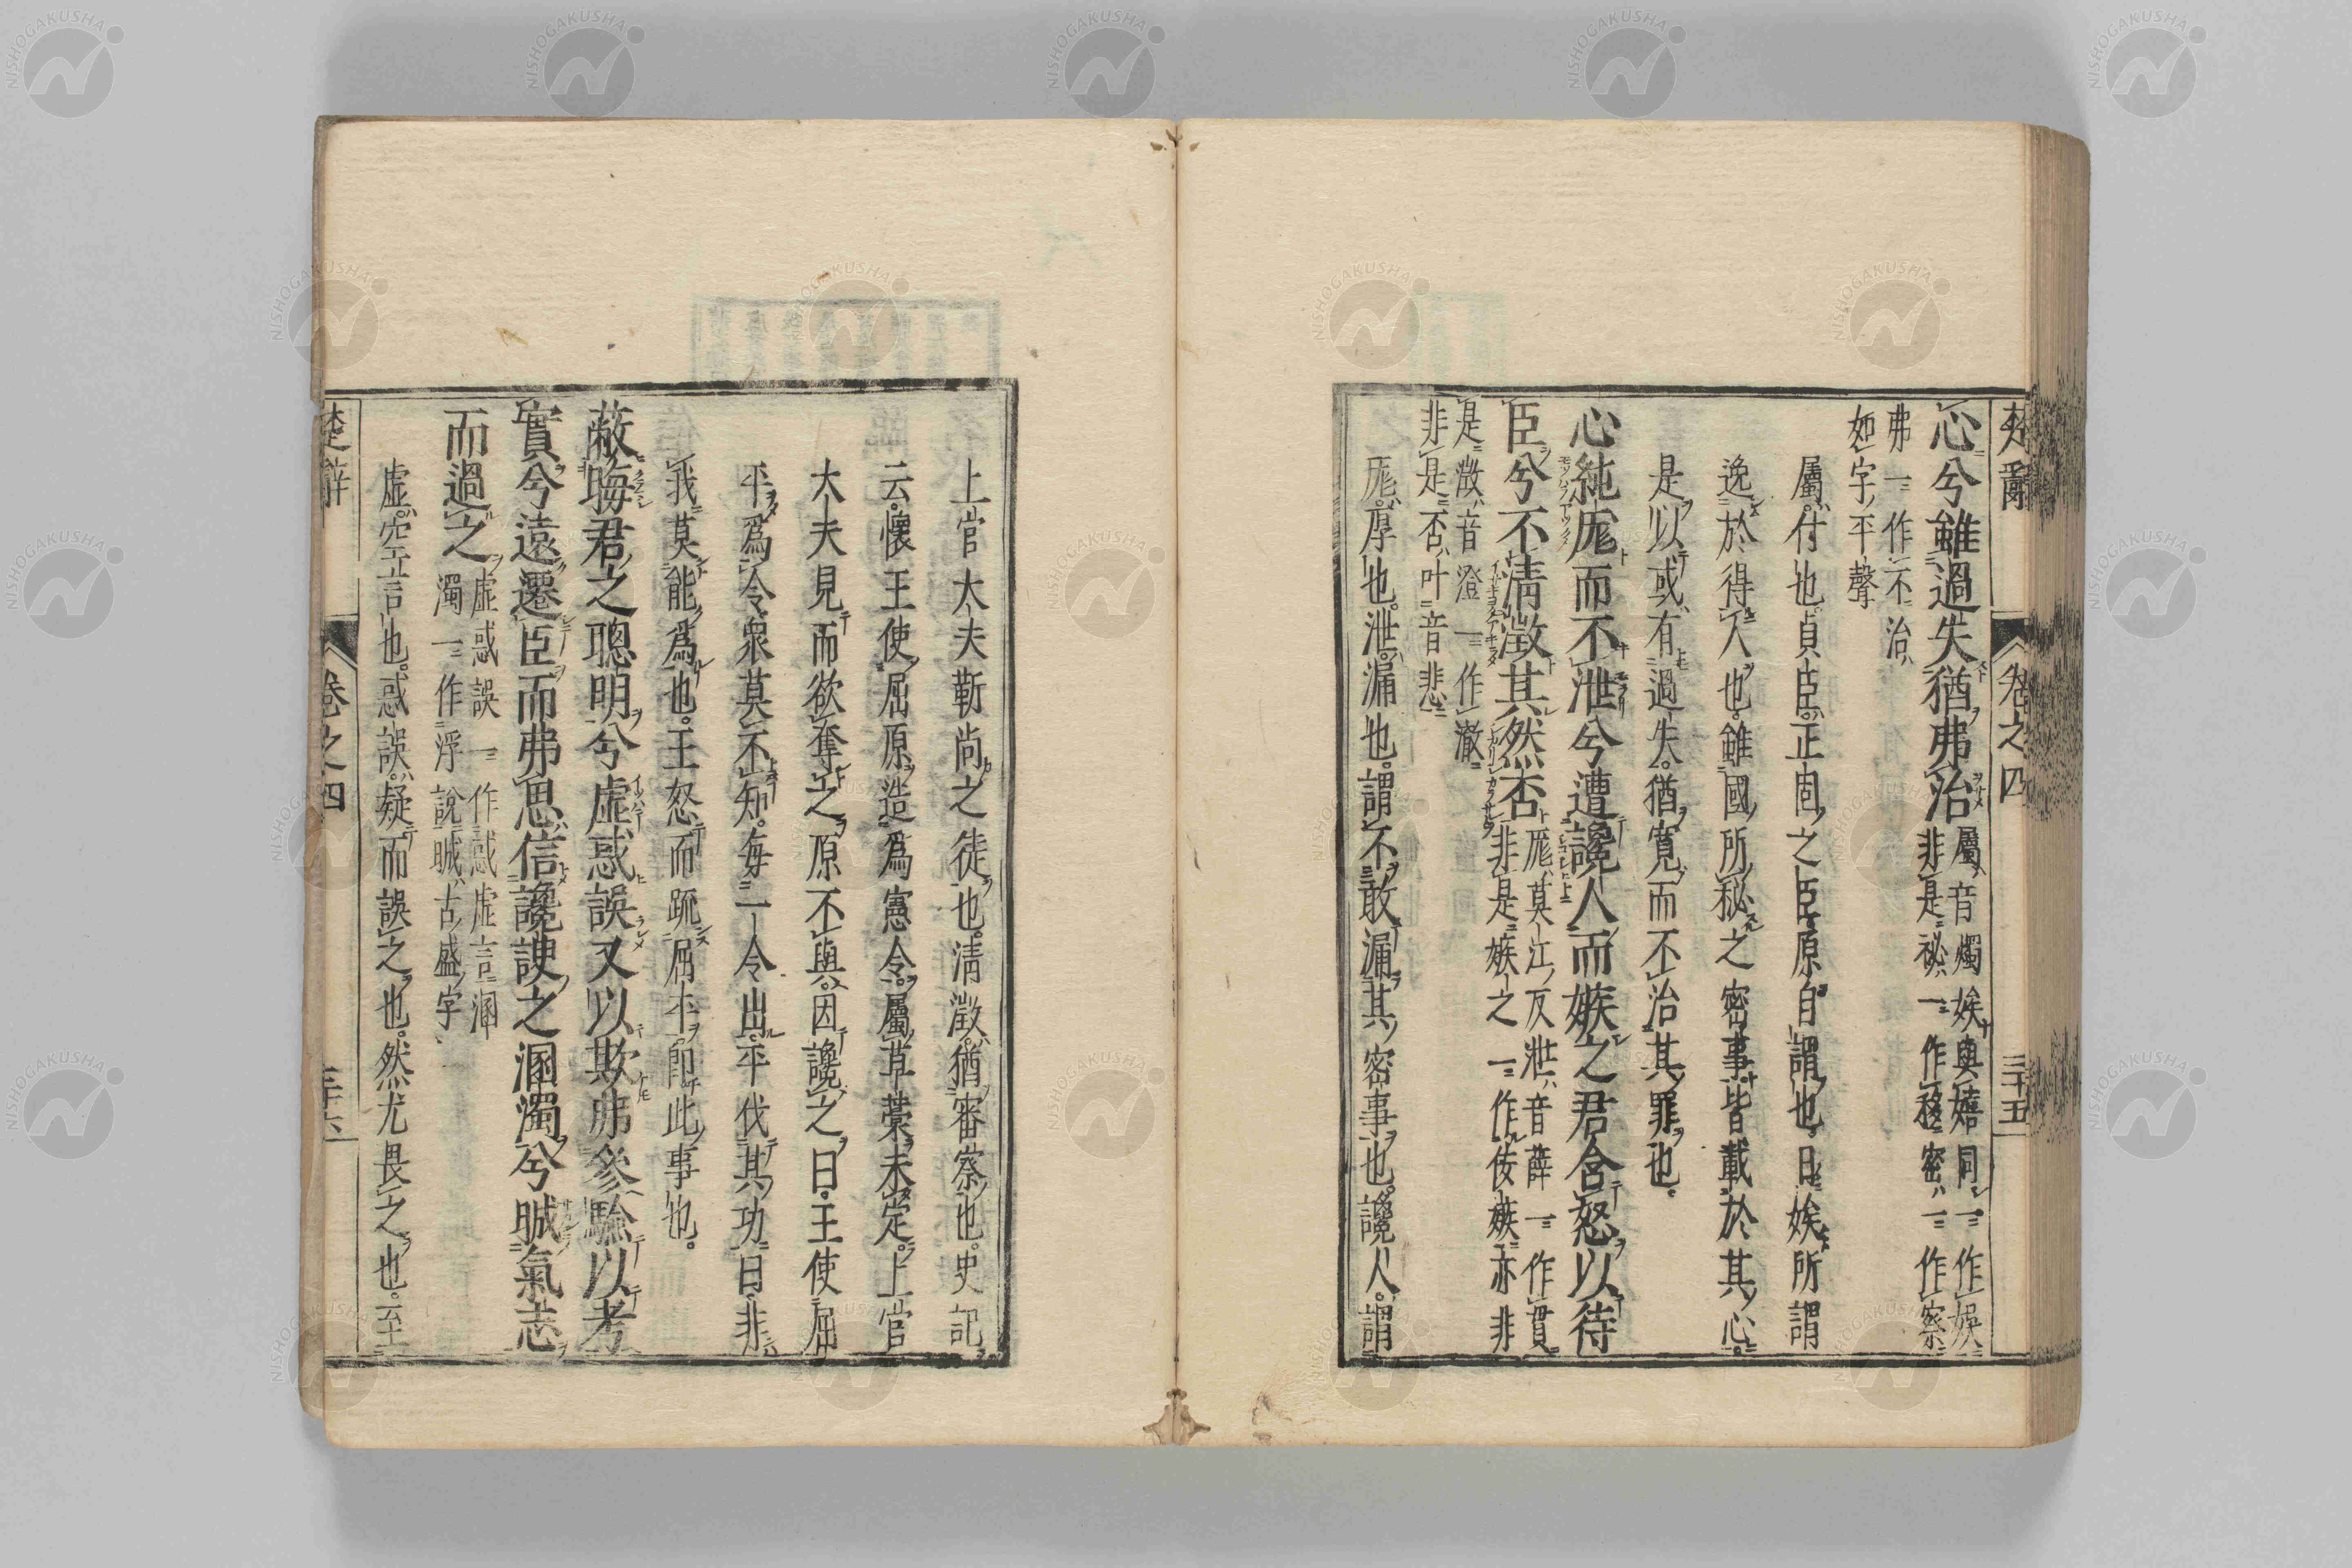 楚辭 卷之四 三十五
心兮雖過失猶弗治
屬音燭娭與嬉同一作娯
非是祕一作移密一作察
弗一作不治
如字平聲
屬付也貞臣正固之臣原自謂也日娭所謂
逸於得人也雖國所秘之密事皆載於其心
是以或有過失猶寬而不治其罪也
心純厖而不泄兮遭讒人而嫉之君含怒以待
臣兮不淸澂其然否
厖莫江反泄音薛一作貫
非是嫉之一作佞嫉亦非
是澂音澄一作澈
非是否叶音悲
厖厚也泄漏也謂不敢漏其密事也讒人謂
上官大夫靳尚之徒也淸澂猶審察也史記
云懷王使屈原造爲憲令屬草藁未定上官
大夫見而欲奪之原不與因讒之曰王使屈
平爲令衆莫不知每一令出平伐其功曰非
我莫能爲也王怒而疏屈平卽此事也
蔽晦君之聰明兮虛惑誤又以欺弗參驗以考
實兮遠遷臣而弗思信讒諛之溷濁兮盛氣志
而過之
虛惑誤一作惑虛言溷
濁一作浮說晠古盛字
虛空言也惑誤疑而誤之也然尤畏之也至
楚辭 卷之四 三十六